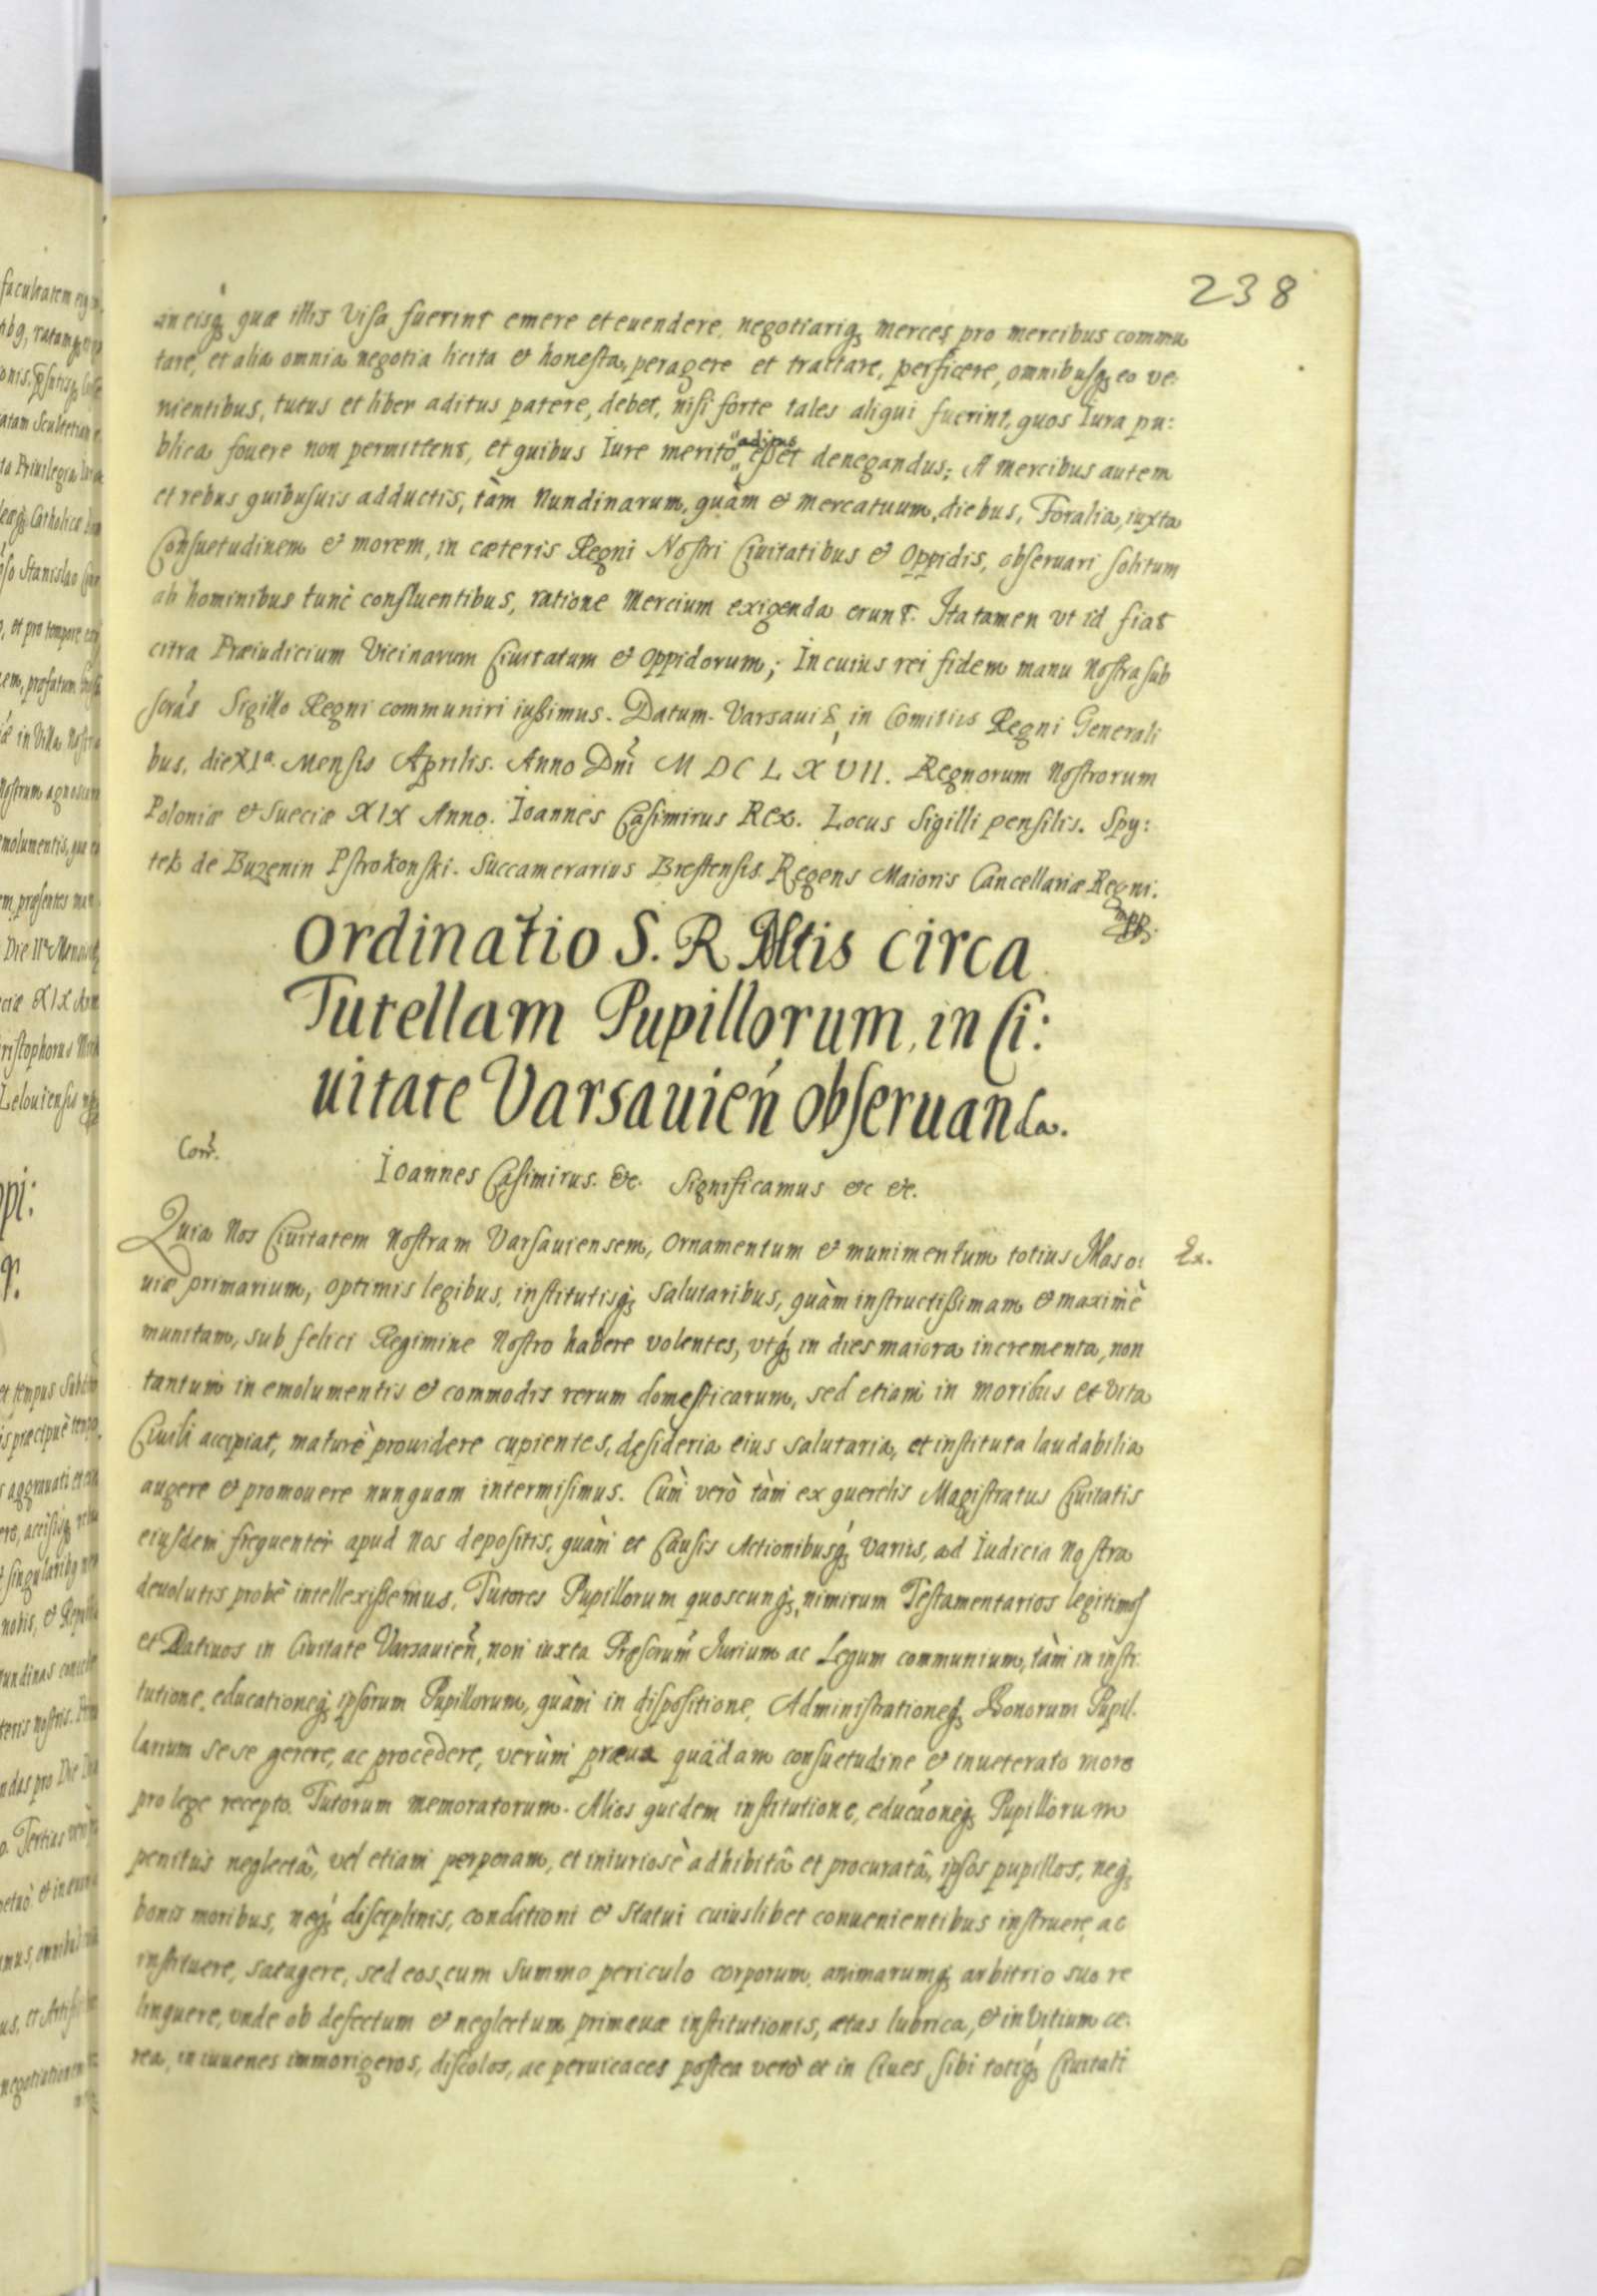 238
in eisq3 quæ illis Visa fuerint emere et euendere, negotiariq3 merces pro mercibus commu
tare, et alia omnia negotia licita & honesta, peragere et tractare, perficere, omnibusq3 eo ve:
nientibus, tutus et liber aditus patere, debet, nisi forte tales aliqui fuerint, quos Iura pu:
blica fouere non permittent, et quibus Iure merito aditus esset denegandus; A mercibus autem
et rebus quibusuis adductis, tàm Nundinarum, quàm & mercatuum, diebus, Foralia, iuxta
Consuetudinem & morem, in cæteris Regni Nostri Ciuitatibus & Oppidis, obseruari solitum
ab hominibus tunc confluentibus, ratione Mercium exigenda erunt. Ita tamen vt id fiat
citra Præiudicium Vicinarum Ciuitatum & Oppidorum; In cuius rei fidem manu Nostra sub
scrās Sigillo Regni communiri iussimus. Datum. Varsauiæ, in Comitiis Regni Generali
bus, die XIa. Mensis Aprilis. Anno Dnī M DC L X VII. Regnorum Nostrorum
Poloniæ & Sueciæ XIX Anno. Ioannes Casimirus Rex. Locus Sigilli pensilis. Spy:
tek de Buzenin Pstrokonski. Succamerarius Brestensis Regens Maioris Cancellariæ Regni.
mpp.
Ordinatio S. R Mtis circa
Tutellam Pupillorum, in Ci:
uitate Varsauień obseruanda.
Conr̄.
Ioannes Casimirus. &c. Significamus &c &c.
Quia Nos Ciuitatem Nostram Varsauiensem, Ornamentum & munimentum totius Maso: Ex.
uiæ primarium, optimis legibus, institutisq3 salutaribus, quàm instructissimam & maximè
munitam, sub felici Regimine Nostro habere volentes, vtq3 in dies maiora incrementa, non
tantum in emolumentis & commodis rerum domesticarum, sed etiam in moribus et vita
Ciuili accipiat, maturè prouidere cupientes, desideria eius salutaria, et instituta laudabilia
augere & promouere nunquam intermisimus. Cùm verò tàm ex querelis Magistratus Ciuitatis
eiusdem frequenter apud Nos depositis, quàm et Causis Actionibusq3 variis, ad Iudicia Nostra
deuolutis probè intellexissemus, Tutores Pupillorum quoscunq3, nimirum Testamentarios legitimos
et Datiuos in Ciuitate Varsauien̄, non iuxta Præscrum̄ Iurium ac Legum communium, tàm in insti:
tutione, educationeq3 ipsorum Pupillorum, quàm in dispositione, Administrationeq3 Bonorum Pupil:
larium sese gerere, ac procedere, verùm praua quâdam consuetudine & inueterato more
pro lege recepto Tutorum memoratorum. Alios quidem institutione, educāoneq3 Pupillorum
penitus neglectâ, vel etiam perperam, et iniuriosè adhibitâ et procuratâ, ipsos pupillos, neq3
bonis moribus, neq3 disciplinis, conditioni & statui cuiuslibet conuenientibus instruere, ac
instituere, satagere, sed eos, cum summo periculo corporum, animarumq3 arbitrio suo re
linquere, vnde ob defectum & neglectum primæuæ institutionis, ætas lubrica, & in Vitium ce:
rea, in iuuenes immorigeros, discolos, ac peruicaces postea verò et in Ciues sibi totiq3 Ciuitati